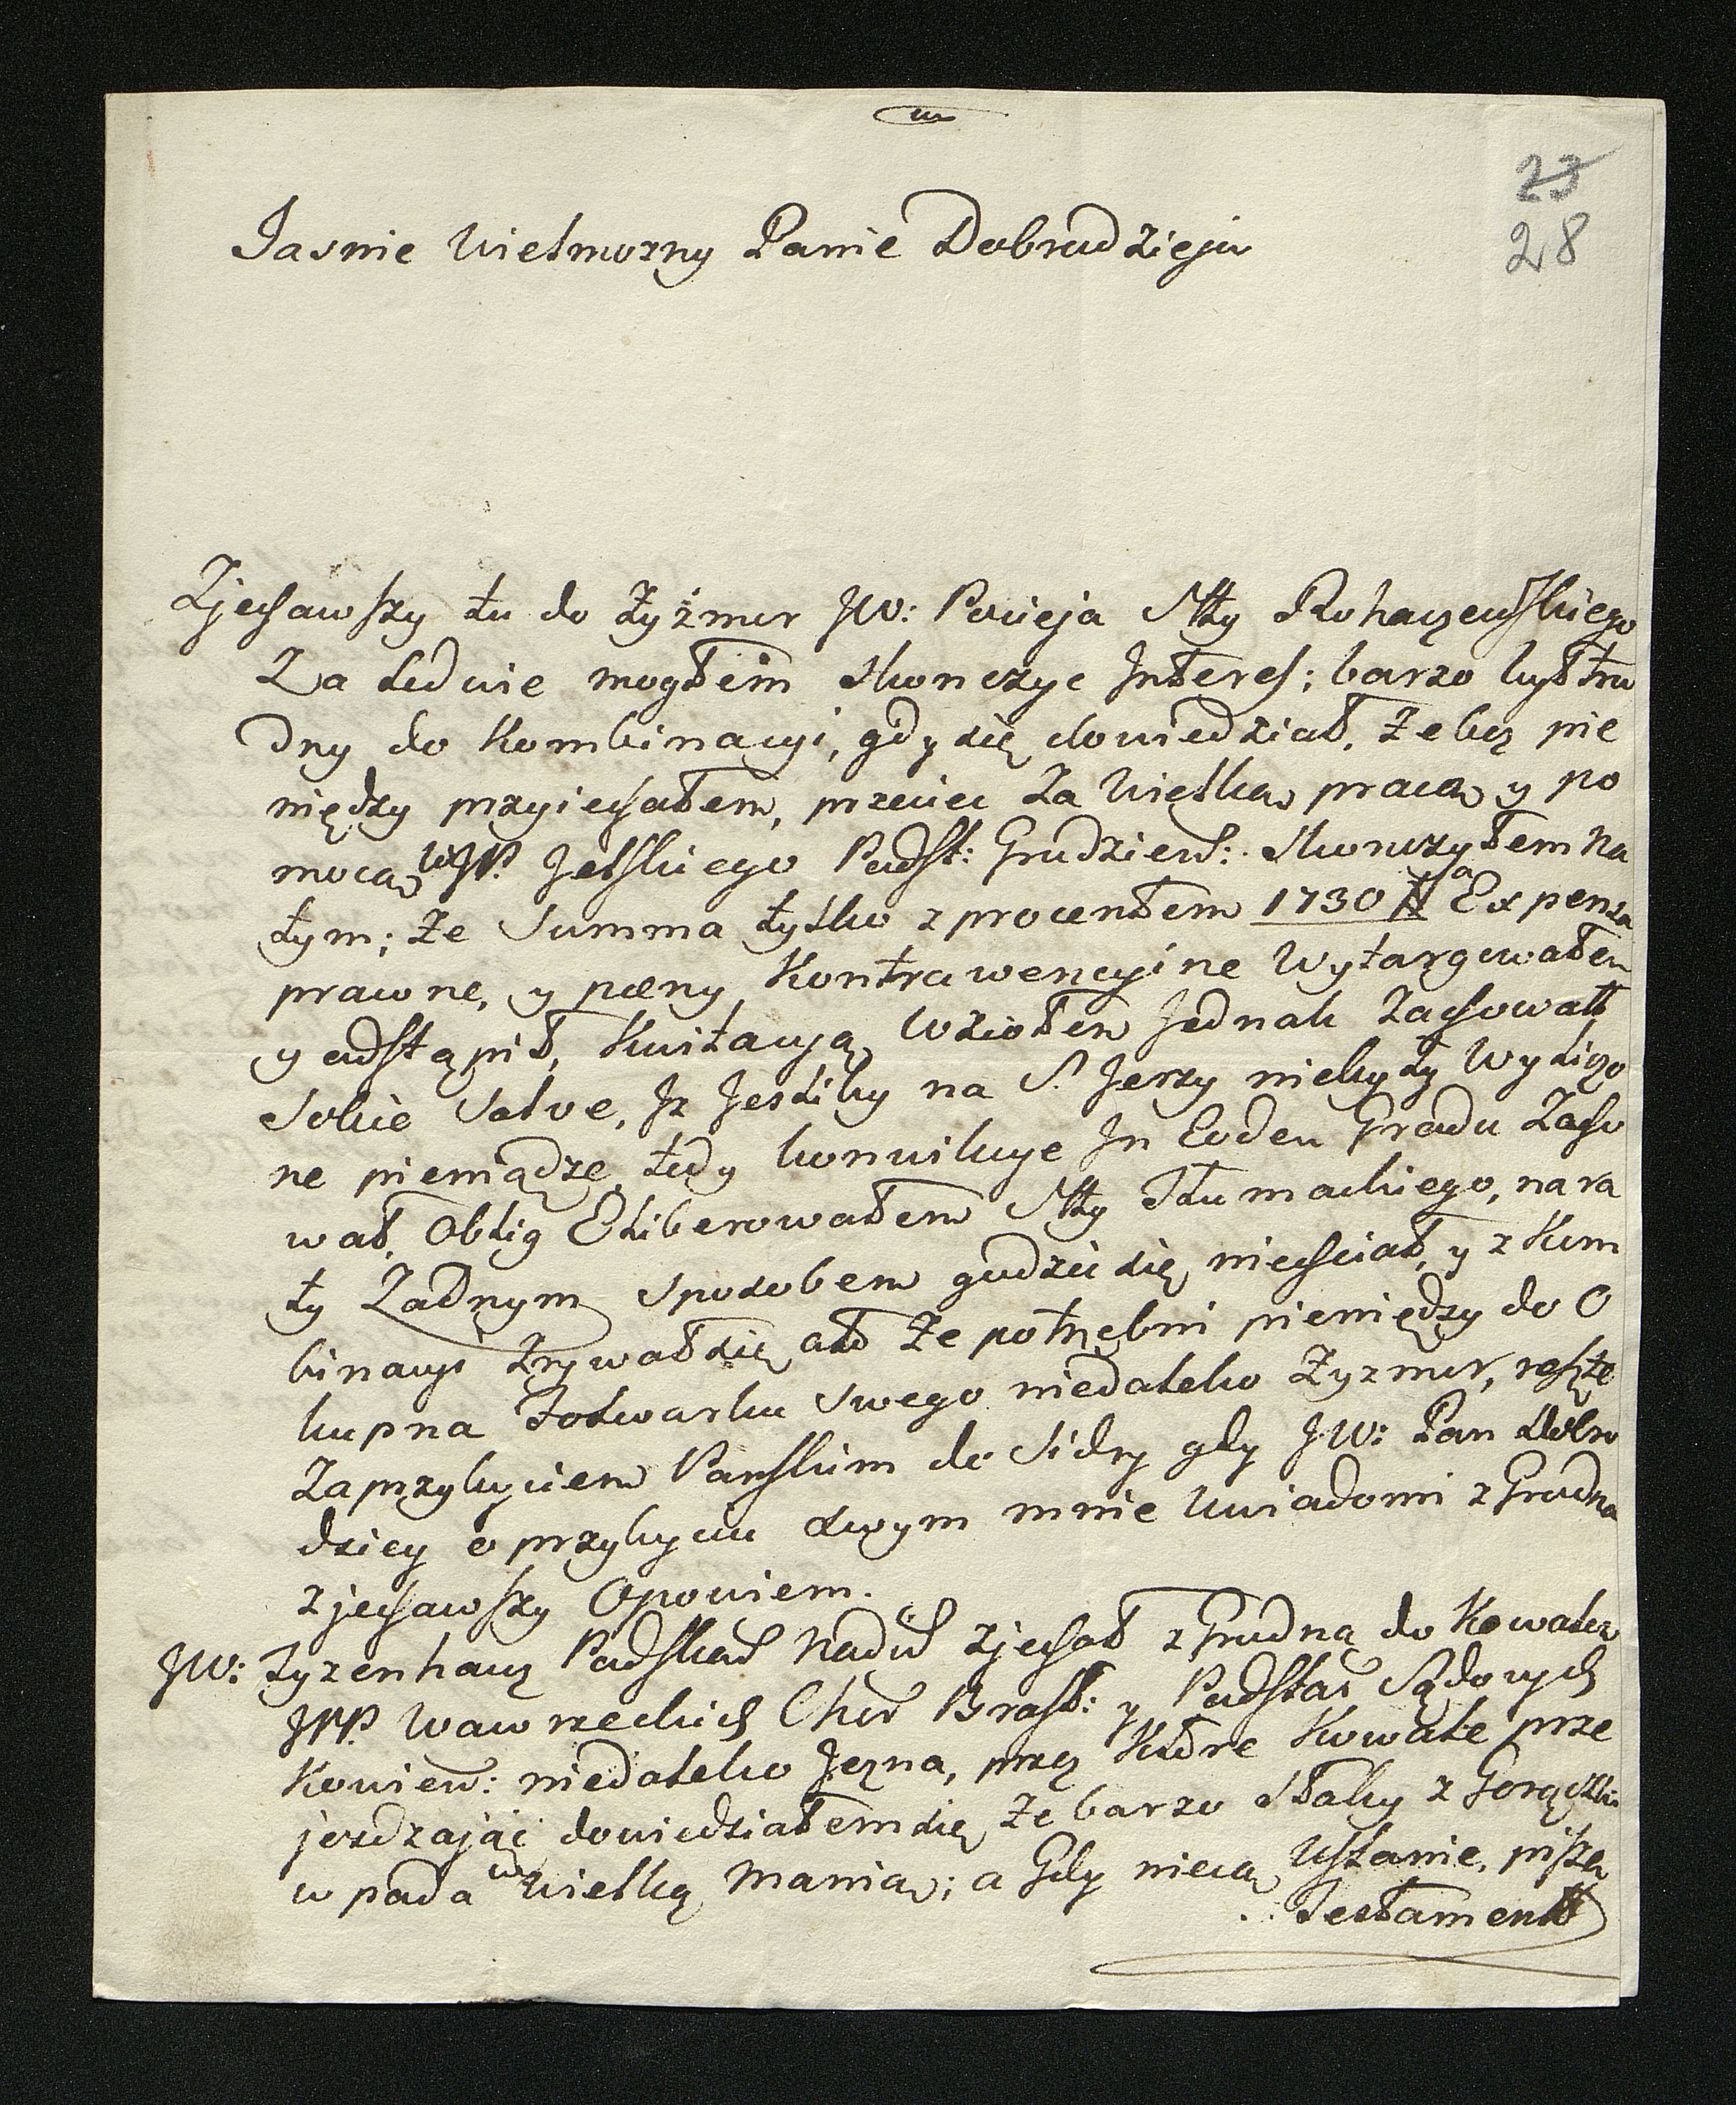 23
28
Jasnie Wielmozny Panie Dobrodzieju
Zjechawszy tu do Zyżmor JW: Pocieja Stty Rohaczewskiego
Za ledwie mogłem skonczyc Interes; barzo był tru
dny do Kombinacyi, gdy się dowiedział, że bez pie
niędzy przyjechałem, przeciec za Wielką pracą y po
mocą WJP. Jelskiego Podst: Grodzien: skonczyłem na
tym; że Summa tylko z procentem 1730 # a Expensa
prawne, y pœny Kontrawencyine Wytargowałem
y odstąpił, Kwitacyą Wziołem Jednak zachował
sobie Salve, Jż Jesliby na S. Jerzy niebyły Wyliczo
ne pieniądze, tedy konwikcye In Eodem Gradu Zacho
wał, Oblig Eliberowałem Stty Tłumackiego, na ra
ty Zadnym sposobem godzic się niechciał, y z Kom
binacyi zrywał się, ale że potrzebni pieniędzy do O
kupna Folwarku Swego niedaleko Zyzmor, resztę
Za przybyciem Panskim do Sidry gdy JW: Pan Dobro
dziey o przybyciu swym mnie Uwiadomi z Grodna
zjechawszy Opowiem.
JW: Tyzenhauz Podskar Nadw zjechał z Grodna do Kowalow
JPP. Wawrzeckich Chor Brasł: y Podstar Sądowych
Kowien: niedaleko Jezna, przez Ktore Kowale prze
jezdzając dowiedziałem się że barzo słaby z Gorączki
w pada w Wielką Manią; a Gdy nieco Ustanie, pisze
Testament